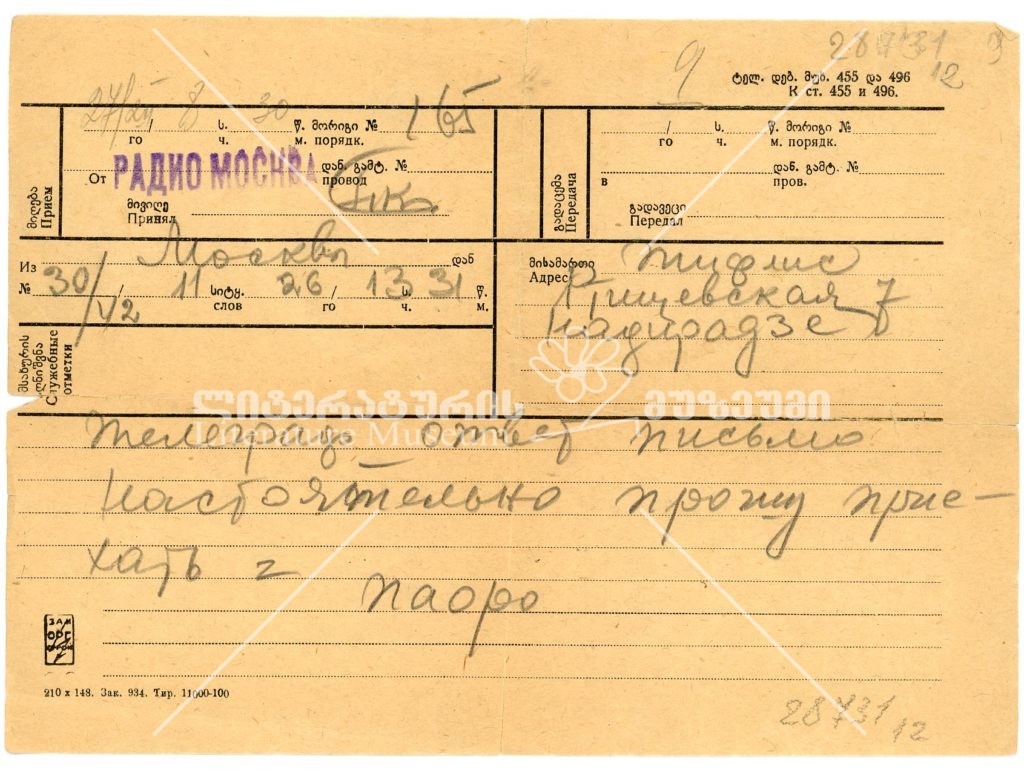 28731 9
12
9
ტელ. დებ. მუხ. 455 და 496
К ст. 455 и 496.
27/ 8 30
/ ს. წ. მორიგი № 165
го ч. м. порядк.
От РАДИО МОСКВА დან. გამტ. №
провод
მივიღე
Принял
მიღება
Прием
/ ს. წ. მორიგი №
го ч. м. порядк.
დან. გამტ. №
в пров.
გადავეცი
Передал
გადაცემა
Передача
Из Москвы დან
№ 30/ 11 სიტყ. 26 / 13 ს. 31 წ.
42 слов го ч. м.
მსახურის აღნიშვნა
Служебные отметки
მისამართი Тифлис
Адрес 7
Надирадзе
ლიტერატურის მუზეუმი
Literature Museum
ответ письмо
настоятельно прошу прие-
хать =
Паоло
ЗАК
ОРГ
210 x 148. Зак. 934. Тир. 11000-100
28731
12